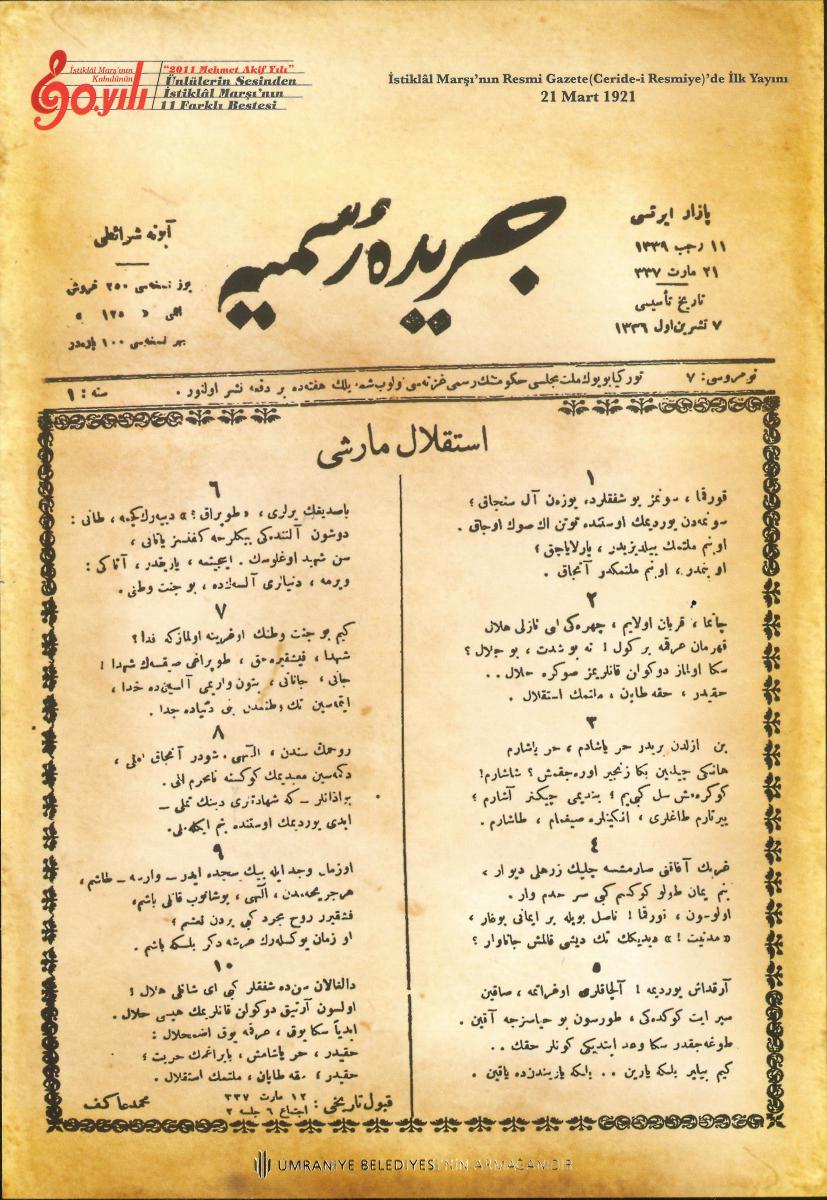 İstiklâl Marşı'nın
Kabulünün
90.yılı
"2011 Mehmet Akif Yılı"
Ünlülerin Sesinden
İstiklâl Marşı'nın
11 Farklı Bestesi
İstiklâl Marşı'nın Resmi Gazete(Ceride-i Resmiye)'de İlk Yayını
21 Mart 1921
پازار ایرتسی
١١ رجب ١٣٣٩
٢١ مارت ٣٣٧
تاریخ تأسیسی
٧ تشرین اول ١٣٣٦
جریدهٔ رسمیه
آبونه شرائطی
یوز نسخه‌سی ٢٥٠ غروش
اللی « ١٢٥ »
بهر نسخه‌سی ١٠٠ پاره‌در
نومروسی: ٧
تورکیا بویوك ملت مجلسی حکومتنك رسمی غزته‌سی اولوب شمدیلك هفته‌ده بر دفعه نشر اولنور.
سنه: ١
استقلال مارشی
١
قورقما، سونمز بو شفقلرده یوزه‌ن آل سنجاق؛
سونمه‌دن یوردیمك اوستنده توتن اك صوك اوجاق.
او بنم ملتمك ییلدیزیدر، پارلایاجق؛
او بنمدر، او بنم ملتمكدر آنجاق.
٢
چاتما، قربان اولایم، چهره‌کی ای نازلی هلال
قهرمان عرقمه بر کول! نه بو شدت، بو جلال؟
سکا اولماز دوکولن قانلریمز صوکره حلال..
حقیدر، حقه طاپان، ملتمك استقلال.
٣
بن ازلدن بریدر حر یاشادم، حر یاشارم
هانکی چیلغین بکا زنجیر اوره‌جقمش؟ شاشارم!
کوکره‌مش سل کبی‌یم؛ بندیمی چیکنر آشارم؛
ییرتارم طاغلری، انکینلره صیغمام، طاشارم.
٤
غربك آفاقنی صارمشسه چلیك زرهلی دیوار،
بنم ایمان طولو کوکسم کبی سرحدم وار.
اولوسون، قورقما! ناصل بویله بر ایمانی بوغار،
«مدنیت!» دیدیكك تك دیشی قالمش جاناوار؟
٥
آرقداش یوردیمه! آلچاقلری اوغراتمه، صاقین
سپر ایت کوکده‌کی، طورسون بو حیاسزجه آقین.
طوغه‌جقدر سکا وعد ایتدیکی کونلر حقك..
کیم بیلیر بلکه یارین.. بلکه یاریندن‌ده یاقین.
٦
باصدیغك یرلری، «طوپراق؟» دییه‌رك کچمه، طانی:
دوشون آلتنده‌کی بیكلرجه کفنسز یاتانی،
سن شهید اوغلوسك. اینجیتمه، یازیقدر، آتاکی:
ویرمه، دنیالری آلسه‌ك‌ده، بو جنت وطنی.
٧
کیم بو جنت وطنك اوغرینه اولمازکه فدا؟
شهدا، فیشقیره‌جق، طوپراغی صیقسه‌ك شهدا!
جانی، جانانی، بتون واریمی آلسین‌ده خدا،
ایتمه‌سین تك وطنمدن بنی دنیاده جدا.
٨
روحمك سندن، الهی، شودر آنجاق املی،
دکمه‌سین معبدیمك کوکسنه نامحرم الی.
بو اذانلر ــ که شهادتلری دینك تملی ــ
ابدی یوردیمك اوستنده بنم ایکله‌ملی.
٩
او زمان وجد ایله بیك سجده ایدر ــ وارسه ــ طاشم،
هر جریحه‌مدن، الهی، بوشانوب قانلی یاشم،
فشقیرر روح مجرد کبی یردن نعشم؛
او زمان یوکسله‌رك عرشه دکر بلکه باشم.
١٠
دالغالان سن‌ده شفقلر کبی ای شانلی هلال!
اولسون آرتیق دوکولن قانلریمك هپسی حلال.
ابدیاً سکا یوق، عرقمه یوق اضمحلال:
حقیدر، حر یاشامش، بایراغمك حریت؛
حقیدر، حقه طاپان، ملتمك استقلال.
قبول تاریخی: ١٢ مارت ٣٣٧
اجتماع ٦ جلسه ٢
محمد عاکف
ÜMRANİYE BELEDİYESİ'NİN ARMAĞANIDIR